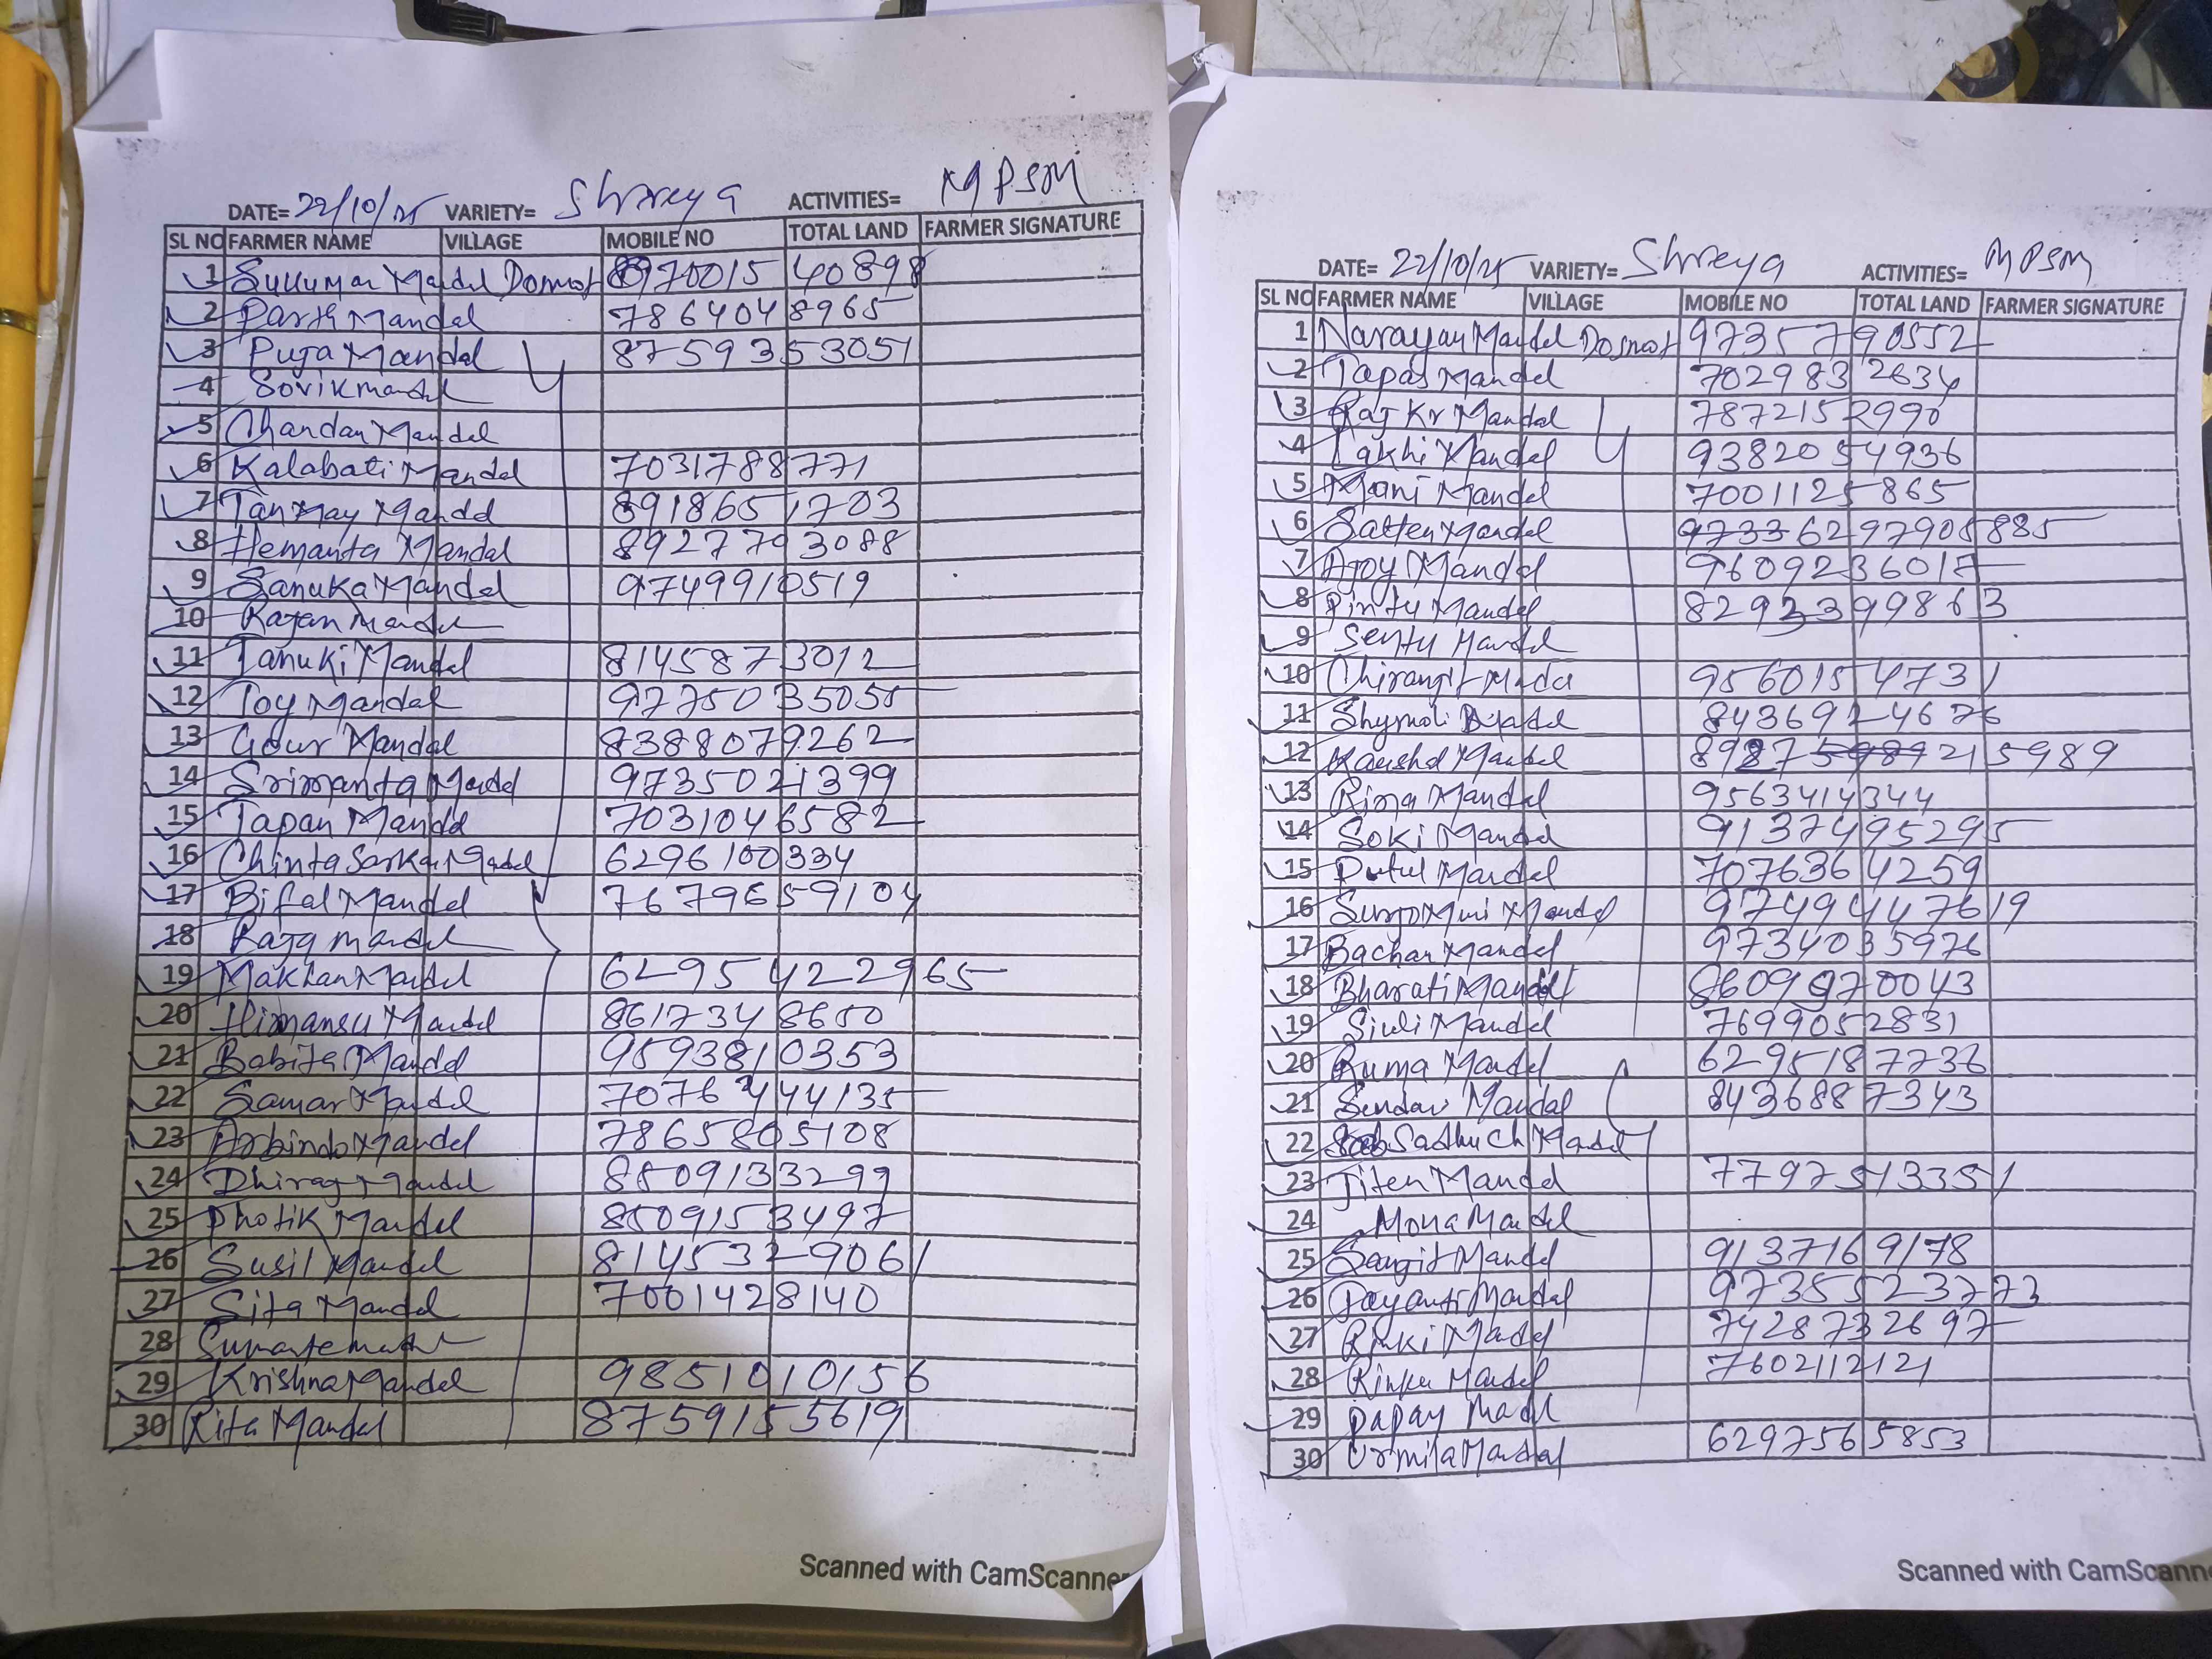 DATE= 22/10/25 VARIETY= Shreya ACTIVITIES= MPSM
SL NO FARMER NAME VILLAGE MOBILE NO TOTAL LAND FARMER SIGNATURE
1 Sukumar Mandal 897001540898
2 Parth Mandal 7864048965
3 Puja Mandal 8759353051
4 Sovik mandal
5 Chandan Mandal
6 Kalabati Mandal 7031788771
7 Tanmay Mandal 8918651703
8 Hemanta Mandal 8927793088
9 Sanuka Mandal 9749910519
10 Rajan mandal
11 Tanuki Mandal 8145873012
12 Joy Mandal 9775035055
13 Gour Mandal 8388079262
14 Srimanta Mandal 9735021399
15 Tapan Mandal 7031046582
16 Chinta Sarkar Mandal 6296100334
17 Bifal Mandal 7679659104
18 Raja mandal
19 Makhan Mandal 62954222965
20 Himansu Mandal 8617348650
21 Babita Mandal 9593810353
22 Samar Mandal
23 Arbindo Mandal 7865805108
24 Dhiraj Mandal 8509133299
25 Photik Mandal 8509153497
26 Susil Mandal 8145329061
27 Sita Mandal 7001428140
28
29 Krishna Mandal 9851010156
30 Rita Mandal 8759155619
Scanned with CamScanner
DATE= 22/10/25 VARIETY= Shreya ACTIVITIES= MPSM
SL NO FARMER NAME VILLAGE MOBILE NO TOTAL LAND FARMER SIGNATURE
1 Narayan Mandal 9735790552
2 Tapas Mandal 7029832634
3 Raj Kr Mandal 7872152990
4 Lakhi Mandal 9382054936
5 Mani Mandal 7001125865
6 Satten Mandal 97336297905885
7 Ajoy Mandal 9609236017
8 Pintu Mandal 8293399863
9 Sentu Mandal
10 Chiranjit Mandal 9560154731
11 Shymoli Mandal 8436924676
12 Kaushal Mandal
13 Rima Mandal 9563414344
14 Soki Mandal 9137495295
15 Putul Mandal 7076364259
16 Mandal 97494447619
17 Bachan Mandal 9734035976
18 Bharati Mandal 8609970043
19 Siuli Mandal 7699052831
20 Ruma Mandal 6295187736
21 Sendari Mandal 8436887343
22 Sadhu Ch Mandal
23 Jiten Mandal 7797513351
24 Mona Mandal
25 Sangit Mandal 9137169178
26 Jayanti Mandal 9735523773
27 Rinki Mandal 7428732697
28 Rinku Mandal 7602112121
29 papay Madl
30 Urmila Mandal 6297565853
Scanned with CamScann